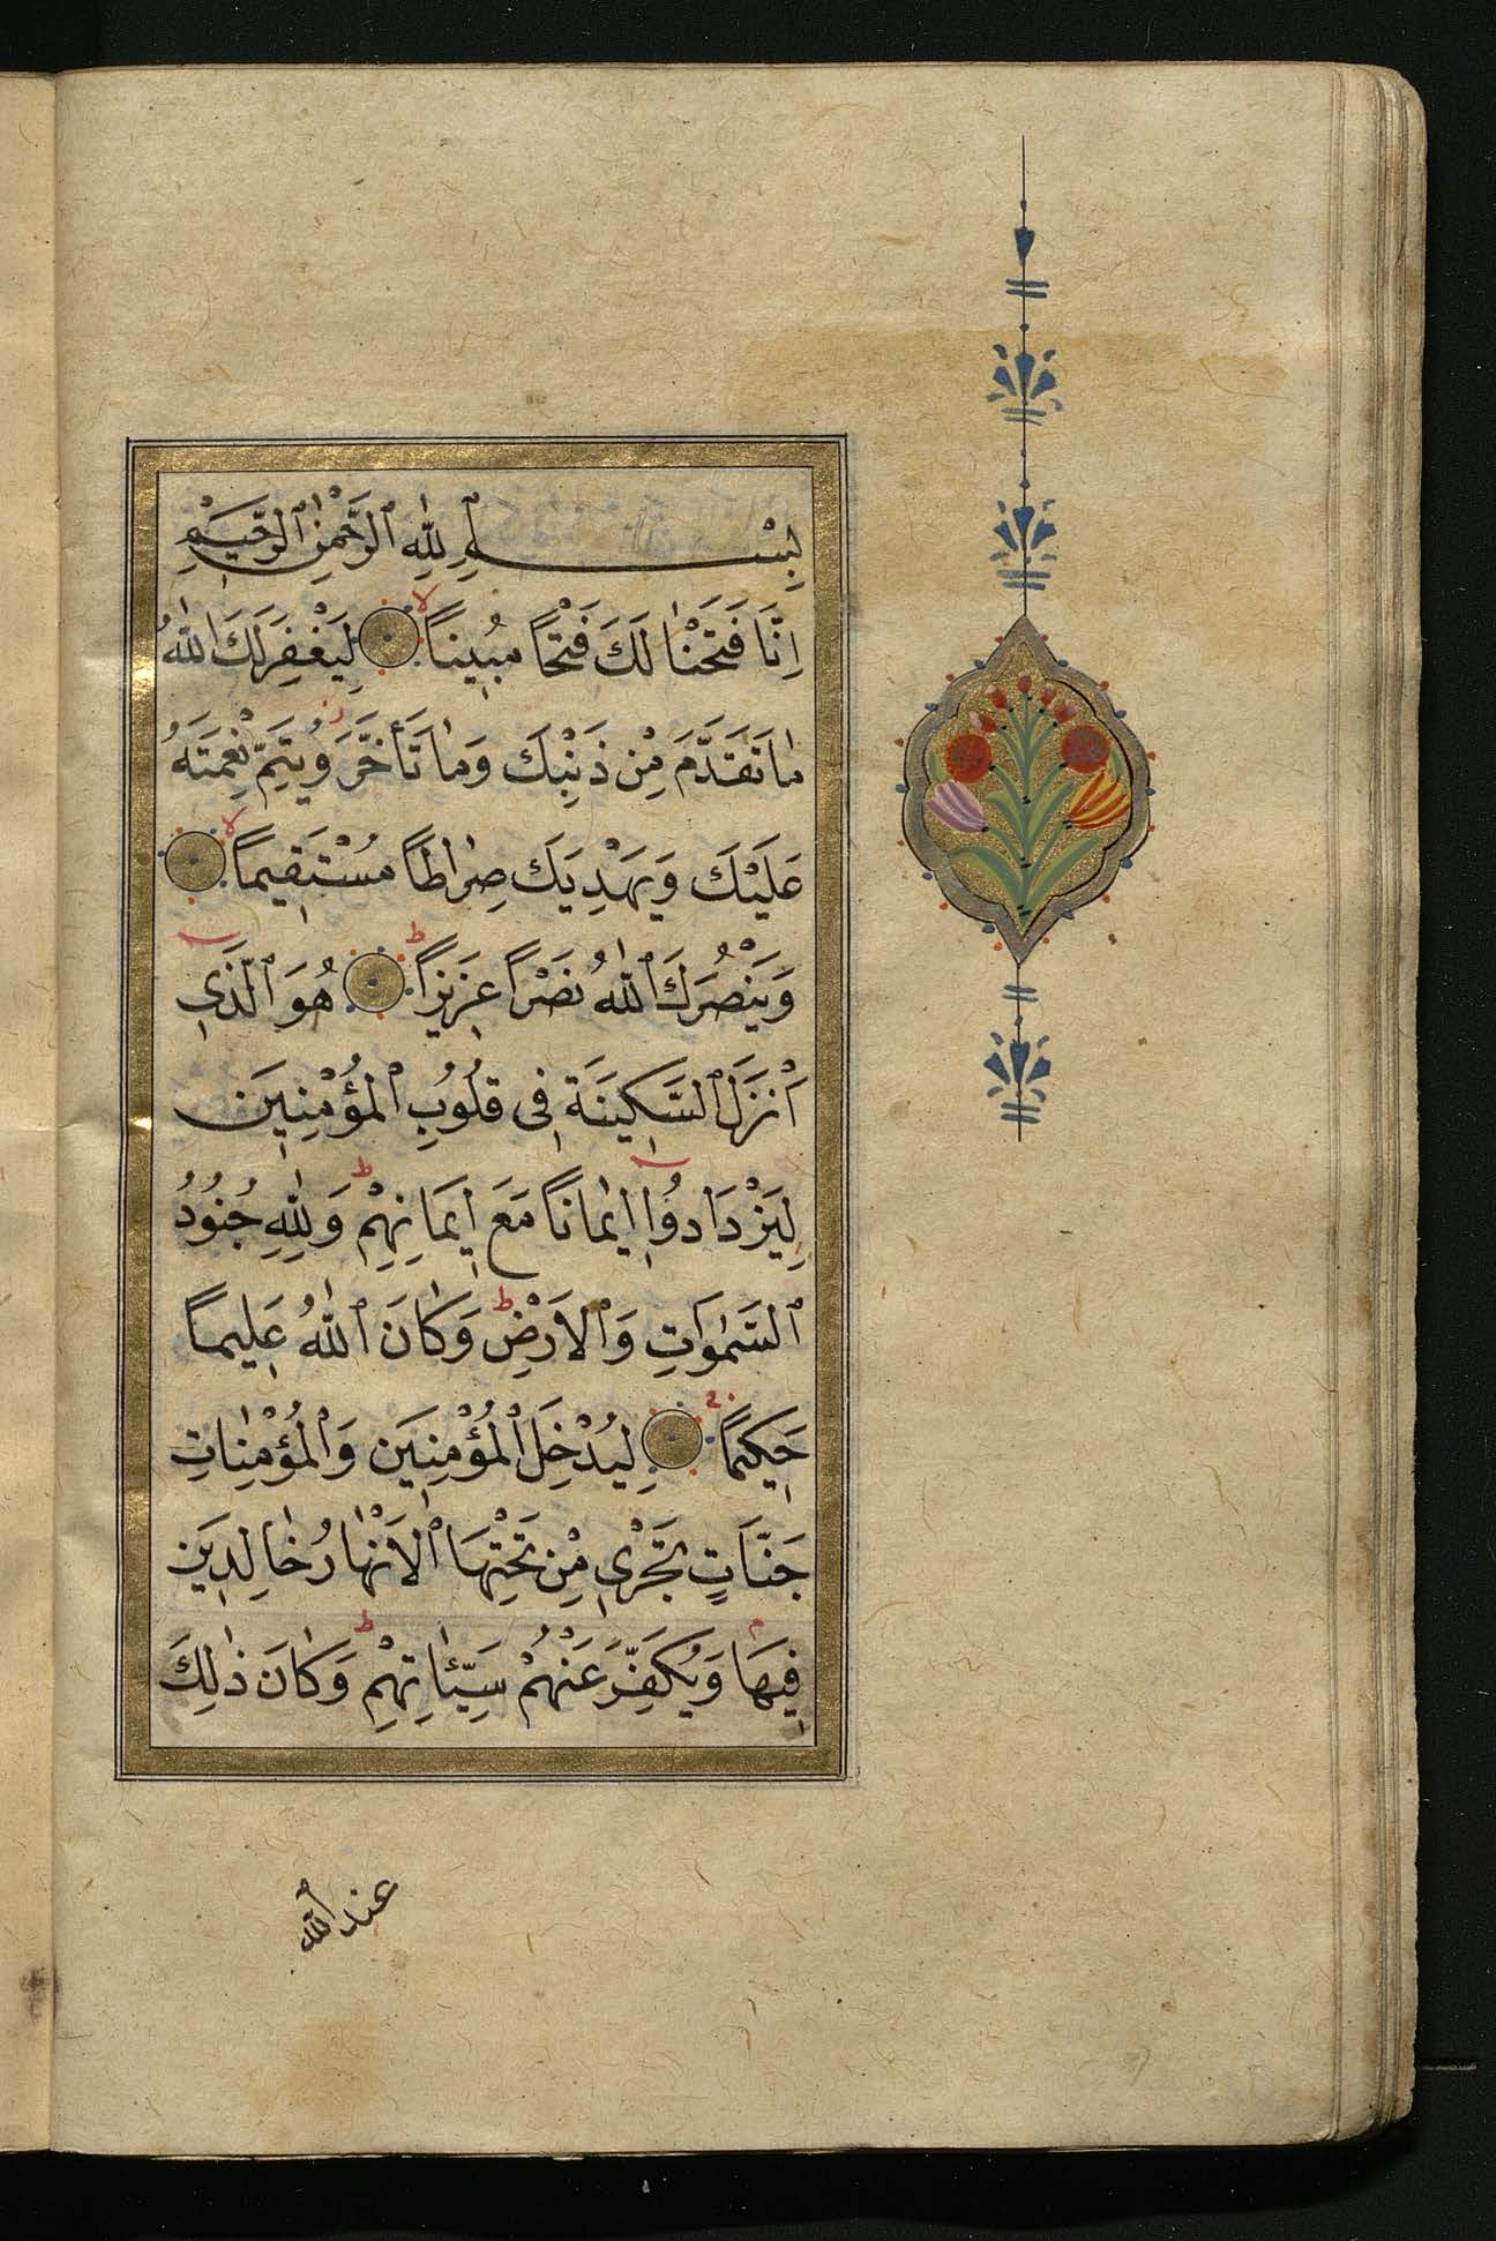 بِسْمِ ٱللّٰهِ ٱلرَّحْمٰنِ ٱلرَّحِيمِ
اِنَّا فَتَحْنٰا لَكَ فَتْحًا مُبِينًا لا لِيَغْفِرَ لَكَ اللّٰهُ
مٰا تَقَدَّمَ مِنْ ذَنْبِكَ وَمٰا تَأَخَّرَ ز وَيُتِمَّ نِعْمَتَهُ
عَلَيْكَ وَيَهْدِيَكَ صِرٰاطًا مُسْتَقِيمًا لا
وَيَنْصُرَكَ ٱللّٰهُ نَصْرًا عَزِيزًا ط هُوَ ٱلَّذِي
اَنْزَلَ ٱلسَّكِينَةَ فِى قُلُوبِ ٱلْمُؤْمِنِينَ
لِيَزْدَادُوٓا اِيمٰانًا مَعَ اِيمَانِهِمْ ط وَلِلّٰهِ جُنُودُ
ٱلسَّمٰوَاتِ وَٱلْاَرْضِ ط وَكٰانَ ٱللّٰهُ عَلِيمًا
حَكِيمًا لِيُدْخِلَ ٱلْمُؤْمِنِينَ وَٱلْمُؤْمِنٰاتِ
جَنَّاتٍ تَجْرِي مِنْ تَحْتِهَا ٱلْاَنْهٰارُ خٰالِدِينَ
فِيهَا وَيُكَفِّرَ عَنْهُمْ سَيِّئٰاتِهِمْ ط وَكٰانَ ذٰلِكَ
عند الله